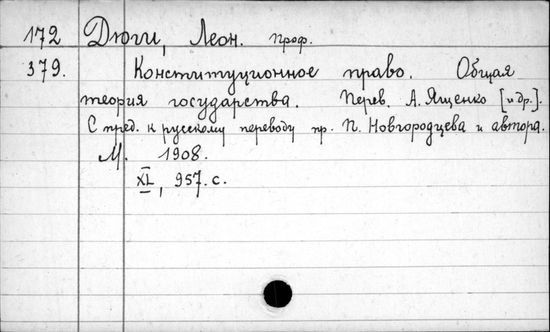 172 Дюги, Леон. проф.
379. Конституционное право. Общая
теория государства. Перев. А. Ященко [и др.].
С пред. к русскому переводу пр. П. Новгородцева и автора.
М. 1908.
XL, 957. с.